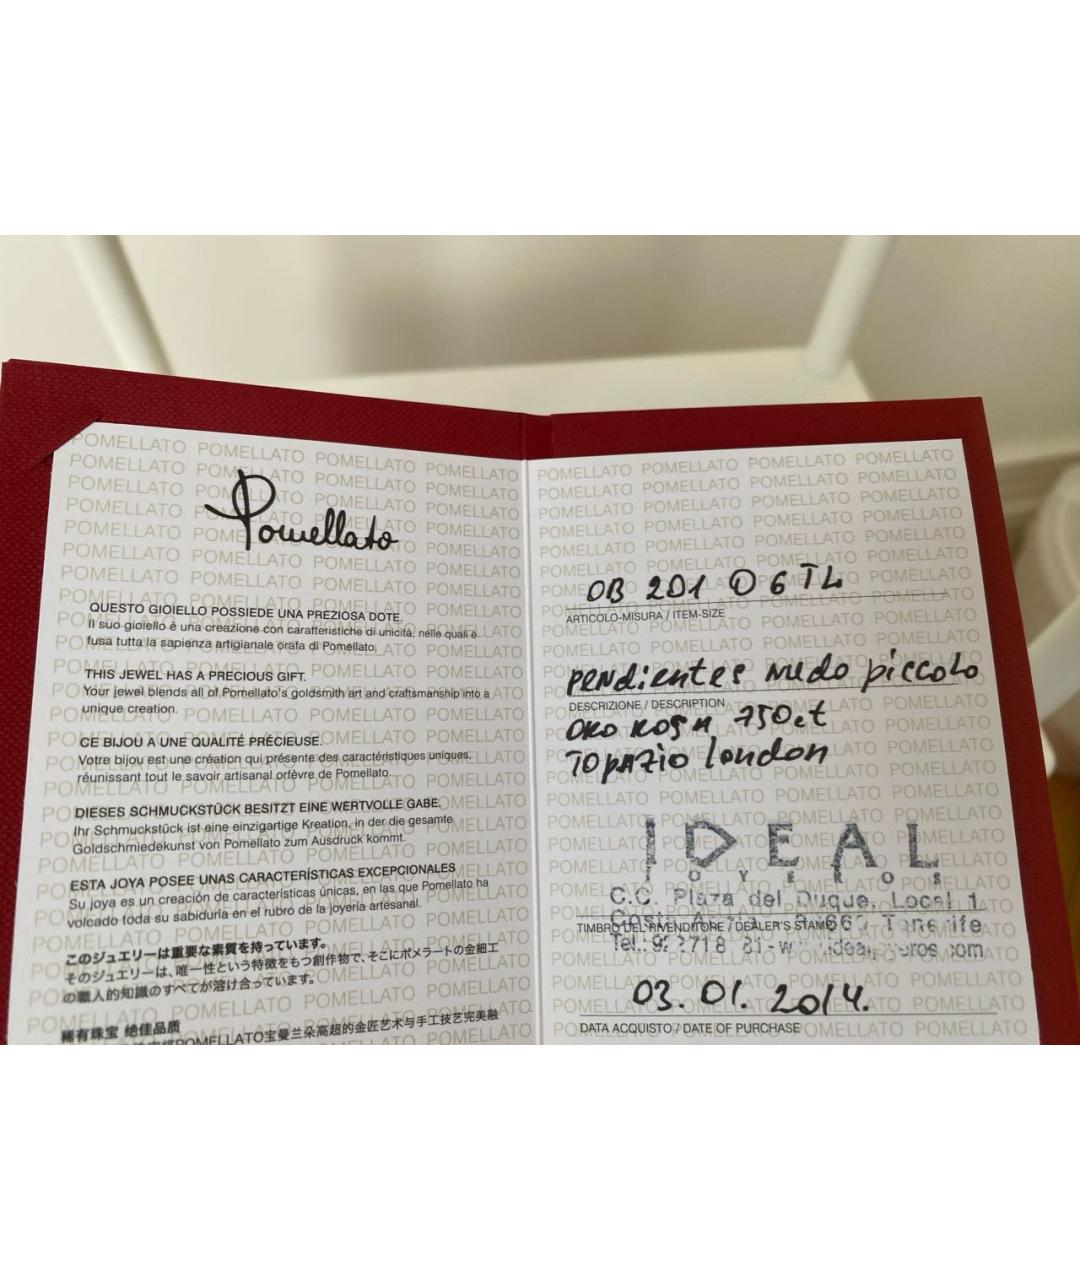 Pomellato
QUESTO GIOIELLO POSSIEDE UNA PREZIOSA DOTE.
Il suo gioiello è una creazione con caratteristiche di unicità, nelle quali è
fusa tutta la sapienza artigianale orafa di Pomellato.
THIS JEWEL HAS A PRECIOUS GIFT.
Your jewel blends all of Pomellato's goldsmith art and craftsmanship into a
unique creation.
CE BIJOU A UNE QUALITÉ PRÉCIEUSE.
Votre bijou est une création qui présente des caractéristiques uniques,
réunissant tout le savoir artisanal orfèvre de Pomellato.
DIESES SCHMUCKSTÜCK BESITZT EINE WERTVOLLE GABE.
Ihr Schmuckstück ist eine einzigartige Kreation, in der die gesamte
Goldschmiedekunst von Pomellato zum Ausdruck kommt.
ESTA JOYA POSEE UNAS CARACTERÍSTICAS EXCEPCIONALES
Su joya es un creación de características únicas, en las que Pomellato ha
volcado toda su sabiduría en el rubro de la joyería artesanal.
このジュエリーは重要な素質を持っています。
そのジュエリーは、唯一性という特徴をもつ創作物で、そこにポメラートの金細工
の職人的知識のすべてが溶け合っています。
稀有珠宝 绝佳品质
POMELLATO宝曼兰朵高超的金匠艺术与手工技艺完美融
OB 201 O6TL
ARTICOLO-MISURA / ITEM-SIZE
pendientes nudo piccolo
DESCRIZIONE / DESCRIPTION
ORO ROSA 750ct
TOPAZIO london
IDEAL
JOYEROS
C.C. Plaza del Duque, Local 1
Tenerife
TIMBRO DEL RIVENDITORE / DEALER'S STAMP
Tel.:
03. 01. 2014.
DATA ACQUISTO / DATE OF PURCHASE